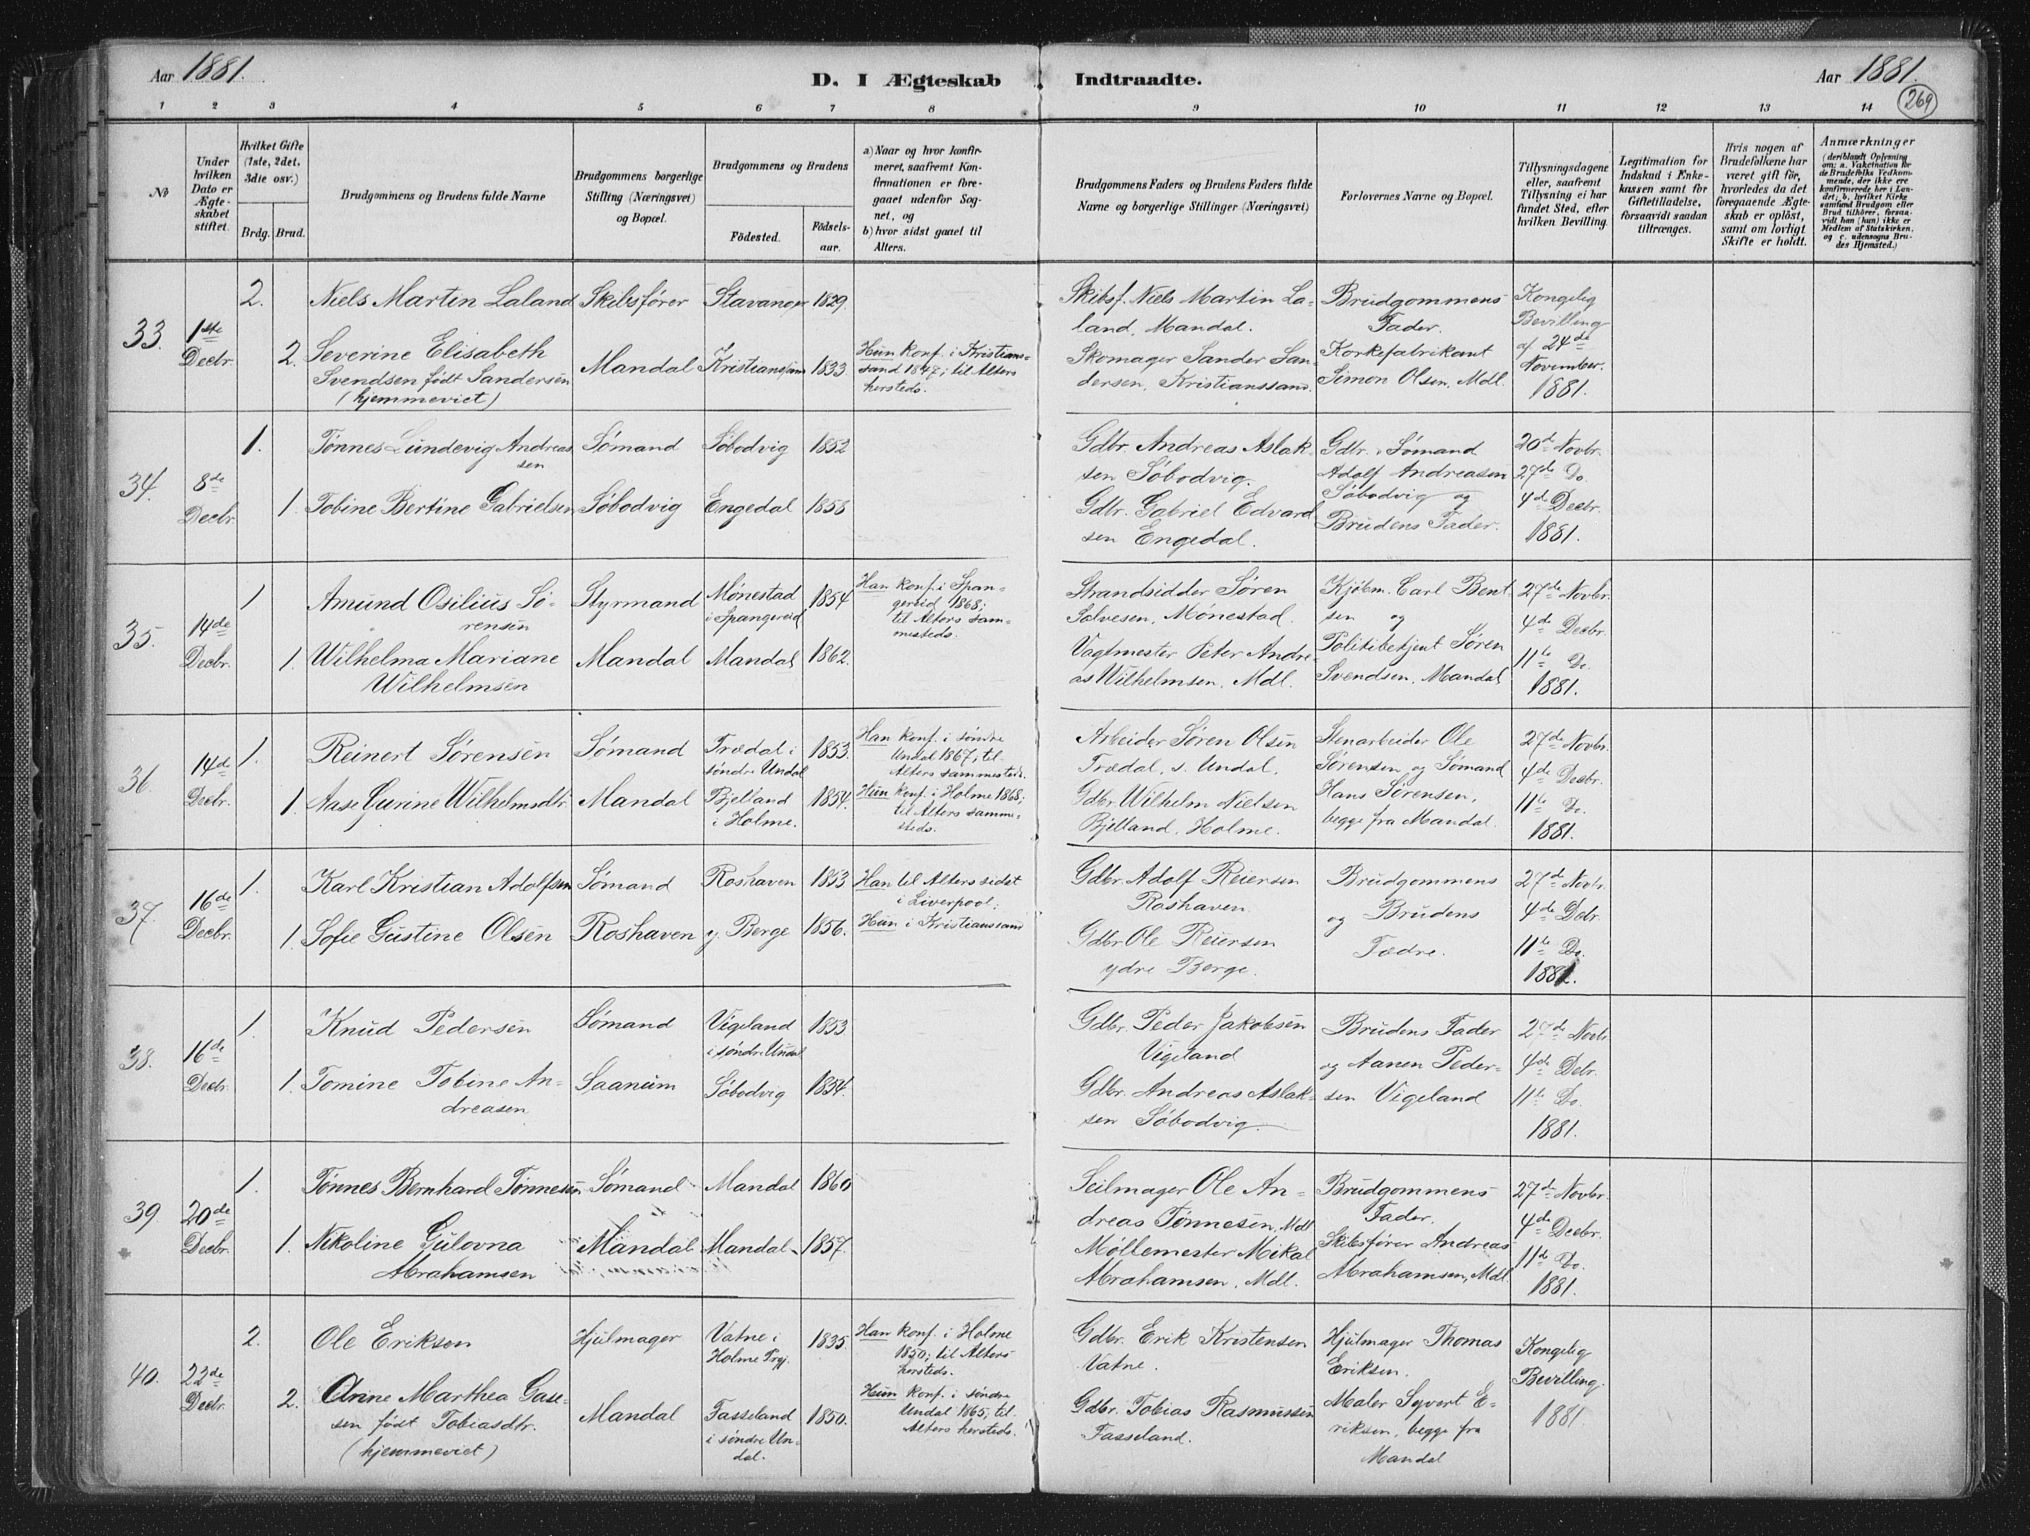 Aar 1881.
D. I Ægteskab Indtraadte.
Aar 1881.
269
1 2 3 4 5 6 7 8 9 10 11 12 13 14
No
Under hvilken Dato er Ægteskabet stiftet.
Hvilket Gifte (1ste, 2det, 3die osv.)
Brdg. Brud.
Brudgommens og Brudens fulde Navne
Brudgommens borgerlige Stilling (Næringsvei) og Bopæl.
Brudgommens og Brudens
Fødested.
Fødselsaar.
a) Naar og hvor konfirmeret, saafremt Konfirmationen er foregaaet udenfor Sognet, og
b) hvor sidst gaaet til Alters.
Brudgommens Faders og Brudens Faders fulde Navne og borgerlige Stillinger (Næringsvei)
Forlovernes Navne og Bopæl.
Tillysningsdagene eller, saafremt Tillysning ei har fundet Sted, efter hvilken Bevilling.
Legitimation for Indskud i Enkekassen samt for Giftetilladelse, forsaavidt saadan tiltrænges.
Hvis nogen af Brudefolkene har været gift før, hvorledes da det foregaaende Ægteskab er opløst, samt om lovligt Skifte er holdt.
Anmærkninger
(deriblandt Oplysning om: a. Vakcination for de Brudefolks Vedkommende, der ikke ere konfirmerede her i Landet; b. hvilket Kirkesamfund Brudgom eller Brud tilhører, forsaavidt han (hun) ikke er Medlem af Statskirken, og c. udensogns Brudes Hjemsted.)
33. 1ste Decbr
2. Niels Martin Laland Skibsfører Stavanger 1829.
2. Severine Elisabeth Svendsen født Sandersen (hjemmeviet) Mandal Kristianssand 1833
Hun konf. i Kristianssand 1847; til Alters hersteds.
Skibsf. Niels Martin Laland, Mandal.
Skomager Sander Sandersen, Kristianssand.
Brudgommens Fader.
Korkefabrikant Simon Olsen, Mdl.
Kongelig Bevilling af 24de November. 1881.
34. 8de Decbr.
1. Tønnes Lundevig Andreassen Sømand Søbodvig 1852
1. Tobine Bertine Gabrielsen Søbodvig Engedal 1858
Gdbr. Andreas Aslaksen Søbodvig.
Gdbr. Gabriel Edvardsen Engedal.
Gdbr. Sømand Adolf Andreasen Søbodvig og Brudens Fader.
20de Novbr. 27de Do. 4de Decbr. 1881.
35. 14de Decbr.
1 Amund Osilius Sørensen Styrmand Mønestad i Spangereid 1854
1. Wilhelma Mariane Wilhelmsen Mandal Mandal 1862.
Han konf. i Spangereid 1868; til Alters sammesteds.
Strandsidder Søren Salvesen, Mønestad.
Vagtmester Peter Andreas Wilhelmsen, Mdl.
Kjøbm. Carl Bentsen og Politibetjent Søren Svendsen, Mandal
27de Novbr. 4de Decbr. 11te Do. 1881.
36. 14de Decbr.
1. Reinert Sørensen Sømand Trædal i søndre Undal 1853.
1. Aase Gurine Wilhelmsdtr Mandal Bjelland i Holme. 1854.
Han konf. i søndre Undal 1867; til Alters sammesteds.
Hun konf. i Holme 1868; til Alters sammesteds.
Arbeider Søren Olsen Trædal, s. Undal.
Gdbr. Wilhelm Nielsen Bjelland, Holme.
Stenarbeider Ole Sørensen og Sømand Hans Sørensen, begge fra Mandal.
27de Novbr. 4de Decbr. 11te Do. 1881.
37. 16de Decbr.
1. Karl Kristian Adolfsen Sømand Roshaven 1853
1. Sofie Gustine Olsen Roshaven y. Berge 1856.
Han til Alters sidst i Liverpool;
Hun i Kristianssand
Gdbr. Adolf Reiersen Roshaven
Gdbr Ole Reiersen ydre Berge.
Brudgommens og Brudens Fædre.
27de Novbr. 4de Debr. 11te Do. 1881.
38. 16de Decbr
1 Knud Pedersen Sømand Vigeland i søndre Undal 1853
1. Tomine Tobine Andreasen Saanum Søbodvig 1854.
Gdbr. Peder Jakobsen Vigeland
Gdbr. Andreas Aslaksen Søbodvig.
Brudens Fader og Aanen Pedersen Vigeland
27de Novbr. 4de Debr. 11te Do. 1881.
39. 20de Decbr.
1. Tønnes Bernhard Tønnesen Sømand Mandal 1860
1. Nikoline Gulovna Abrahamsen Mandal Mandal 1857.
Seilmager Ole Andreas Tønnesen, Mdl
Møllemester Mikal Abrahamsen, Mdl.
Brudgommens Fader.
Skibsfører Andreas Abrahamsen, Mdl
27de Novbr. 4de Decbr. 11te Do. 1881.
40. 22de Decbr.
2. Ole Eriksen Hjulmager Vatne i Holme Prgj. 1835.
2. Anne Marthea Gasesen født Tobiasdtr. (hjemmeviet) Mandal Fasseland i søndre Undal. 1850.
Han konf. i Holme 1850; til Alters hersteds.
Hun konf. i søndre Undal 1865; til Alters hersteds.
Gdbr. Erik Kristensen Vatne.
Gdbr. Tobias Rasmussen Fasseland.
Hjulmager Thomas Eriksen.
Maler Syvert Eriksen, begge fra Mandal
Kongelig Bevilling. 1881.